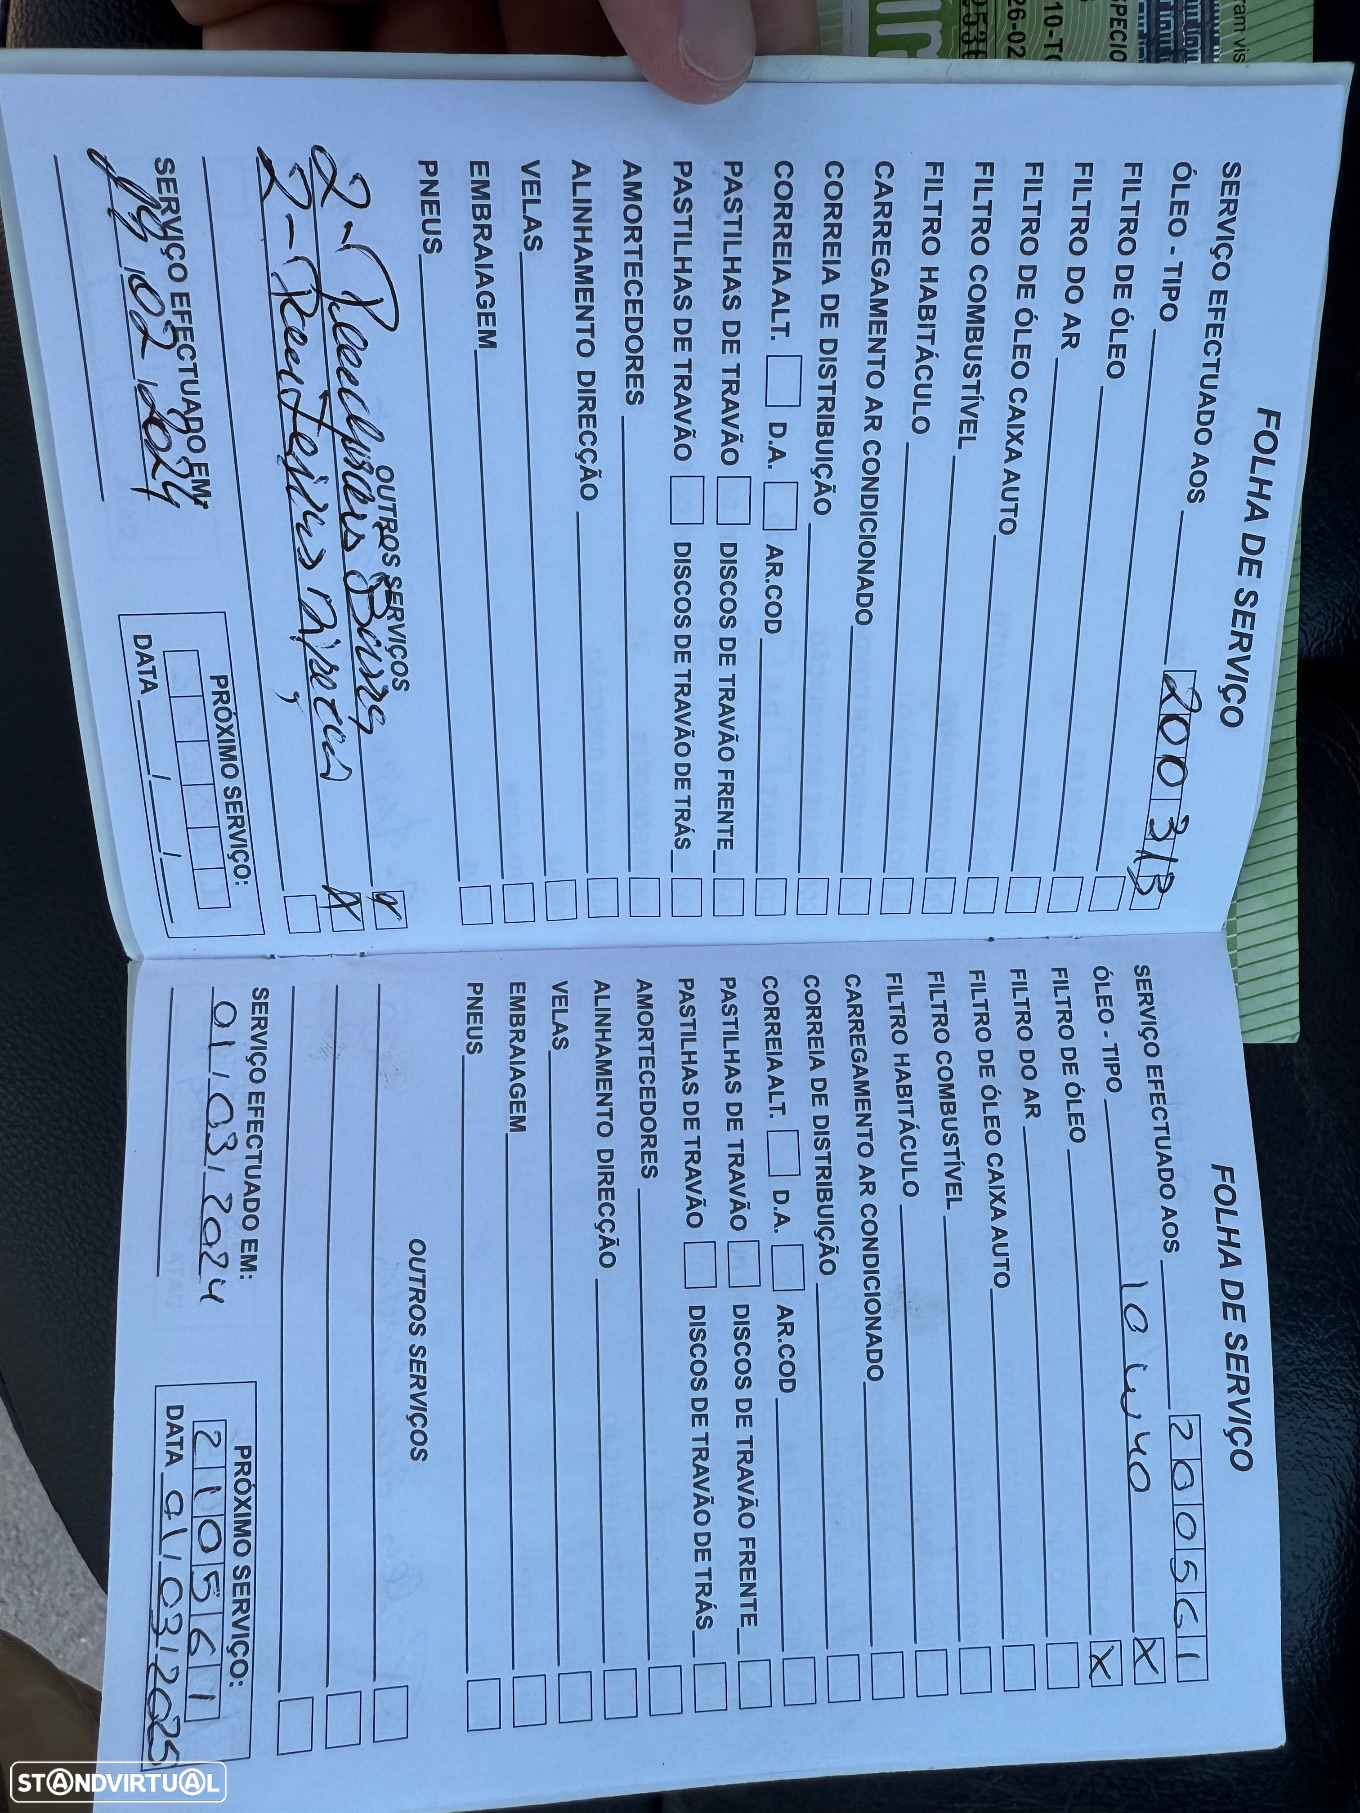 FOLHA DE SERVIÇO
SERVIÇO EFECTUADO AOS 200313
ÓLEO - TIPO
FILTRO DE ÓLEO
FILTRO DO AR
FILTRO DE ÓLEO CAIXA AUTO
FILTRO COMBUSTÍVEL
FILTRO HABITÁCULO
CARREGAMENTO AR CONDICIONADO
CORREIA DE DISTRIBUIÇÃO
CORREIA ALT. D.A. AR.COD
PASTILHAS DE TRAVÃO DISCOS DE TRAVÃO FRENTE
PASTILHAS DE TRAVÃO DISCOS DE TRAVÃO DE TRÁS
AMORTECEDORES
ALINHAMENTO DIRECÇÃO
VELAS
EMBRAIAGEM
PNEUS
OUTROS SERVIÇOS
2 - X
2 - X
SERVIÇO EFECTUADO EM:
02 / 2024
PRÓXIMO SERVIÇO:
DATA / /
FOLHA DE SERVIÇO
SERVIÇO EFECTUADO AOS 200561
ÓLEO - TIPO 10W40 X
FILTRO DE ÓLEO X
FILTRO DO AR
FILTRO DE ÓLEO CAIXA AUTO
FILTRO COMBUSTÍVEL
FILTRO HABITÁCULO
CARREGAMENTO AR CONDICIONADO
CORREIA DE DISTRIBUIÇÃO
CORREIA ALT. D.A. AR.COD
PASTILHAS DE TRAVÃO DISCOS DE TRAVÃO FRENTE
PASTILHAS DE TRAVÃO DISCOS DE TRAVÃO DE TRÁS
AMORTECEDORES
ALINHAMENTO DIRECÇÃO
VELAS
EMBRAIAGEM
PNEUS
OUTROS SERVIÇOS
SERVIÇO EFECTUADO EM:
01 / 03 / 2024
PRÓXIMO SERVIÇO:
210561
DATA 01 / 03 / 2025
STANDVIRTUAL